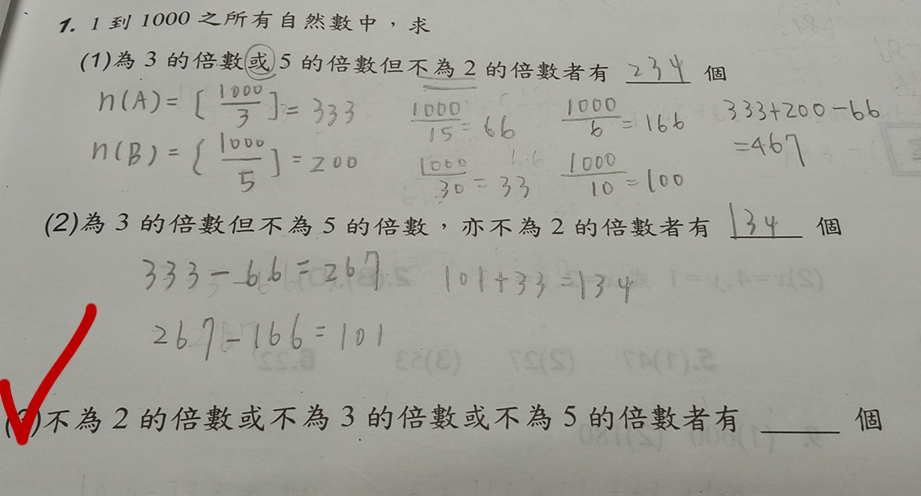 1. 1 到 1000 之所有自然數中，求
(1)為 3 的倍數或 5 的倍數但不為 2 的倍數者有 234 個
n(A) = [1000/3] = 333 1000/15 = 66 1000/6 = 166 333+200-66
n(B) = [1000/5] = 200 1000/30 = 33 1000/10 = 100 =467
(2)為 3 的倍數但不為 5 的倍數，亦不為 2 的倍數者有 134 個
333-66=267 101+33=134
267-166=101
不為 2 的倍數或不為 3 的倍數或不為 5 的倍數者有 ____ 個